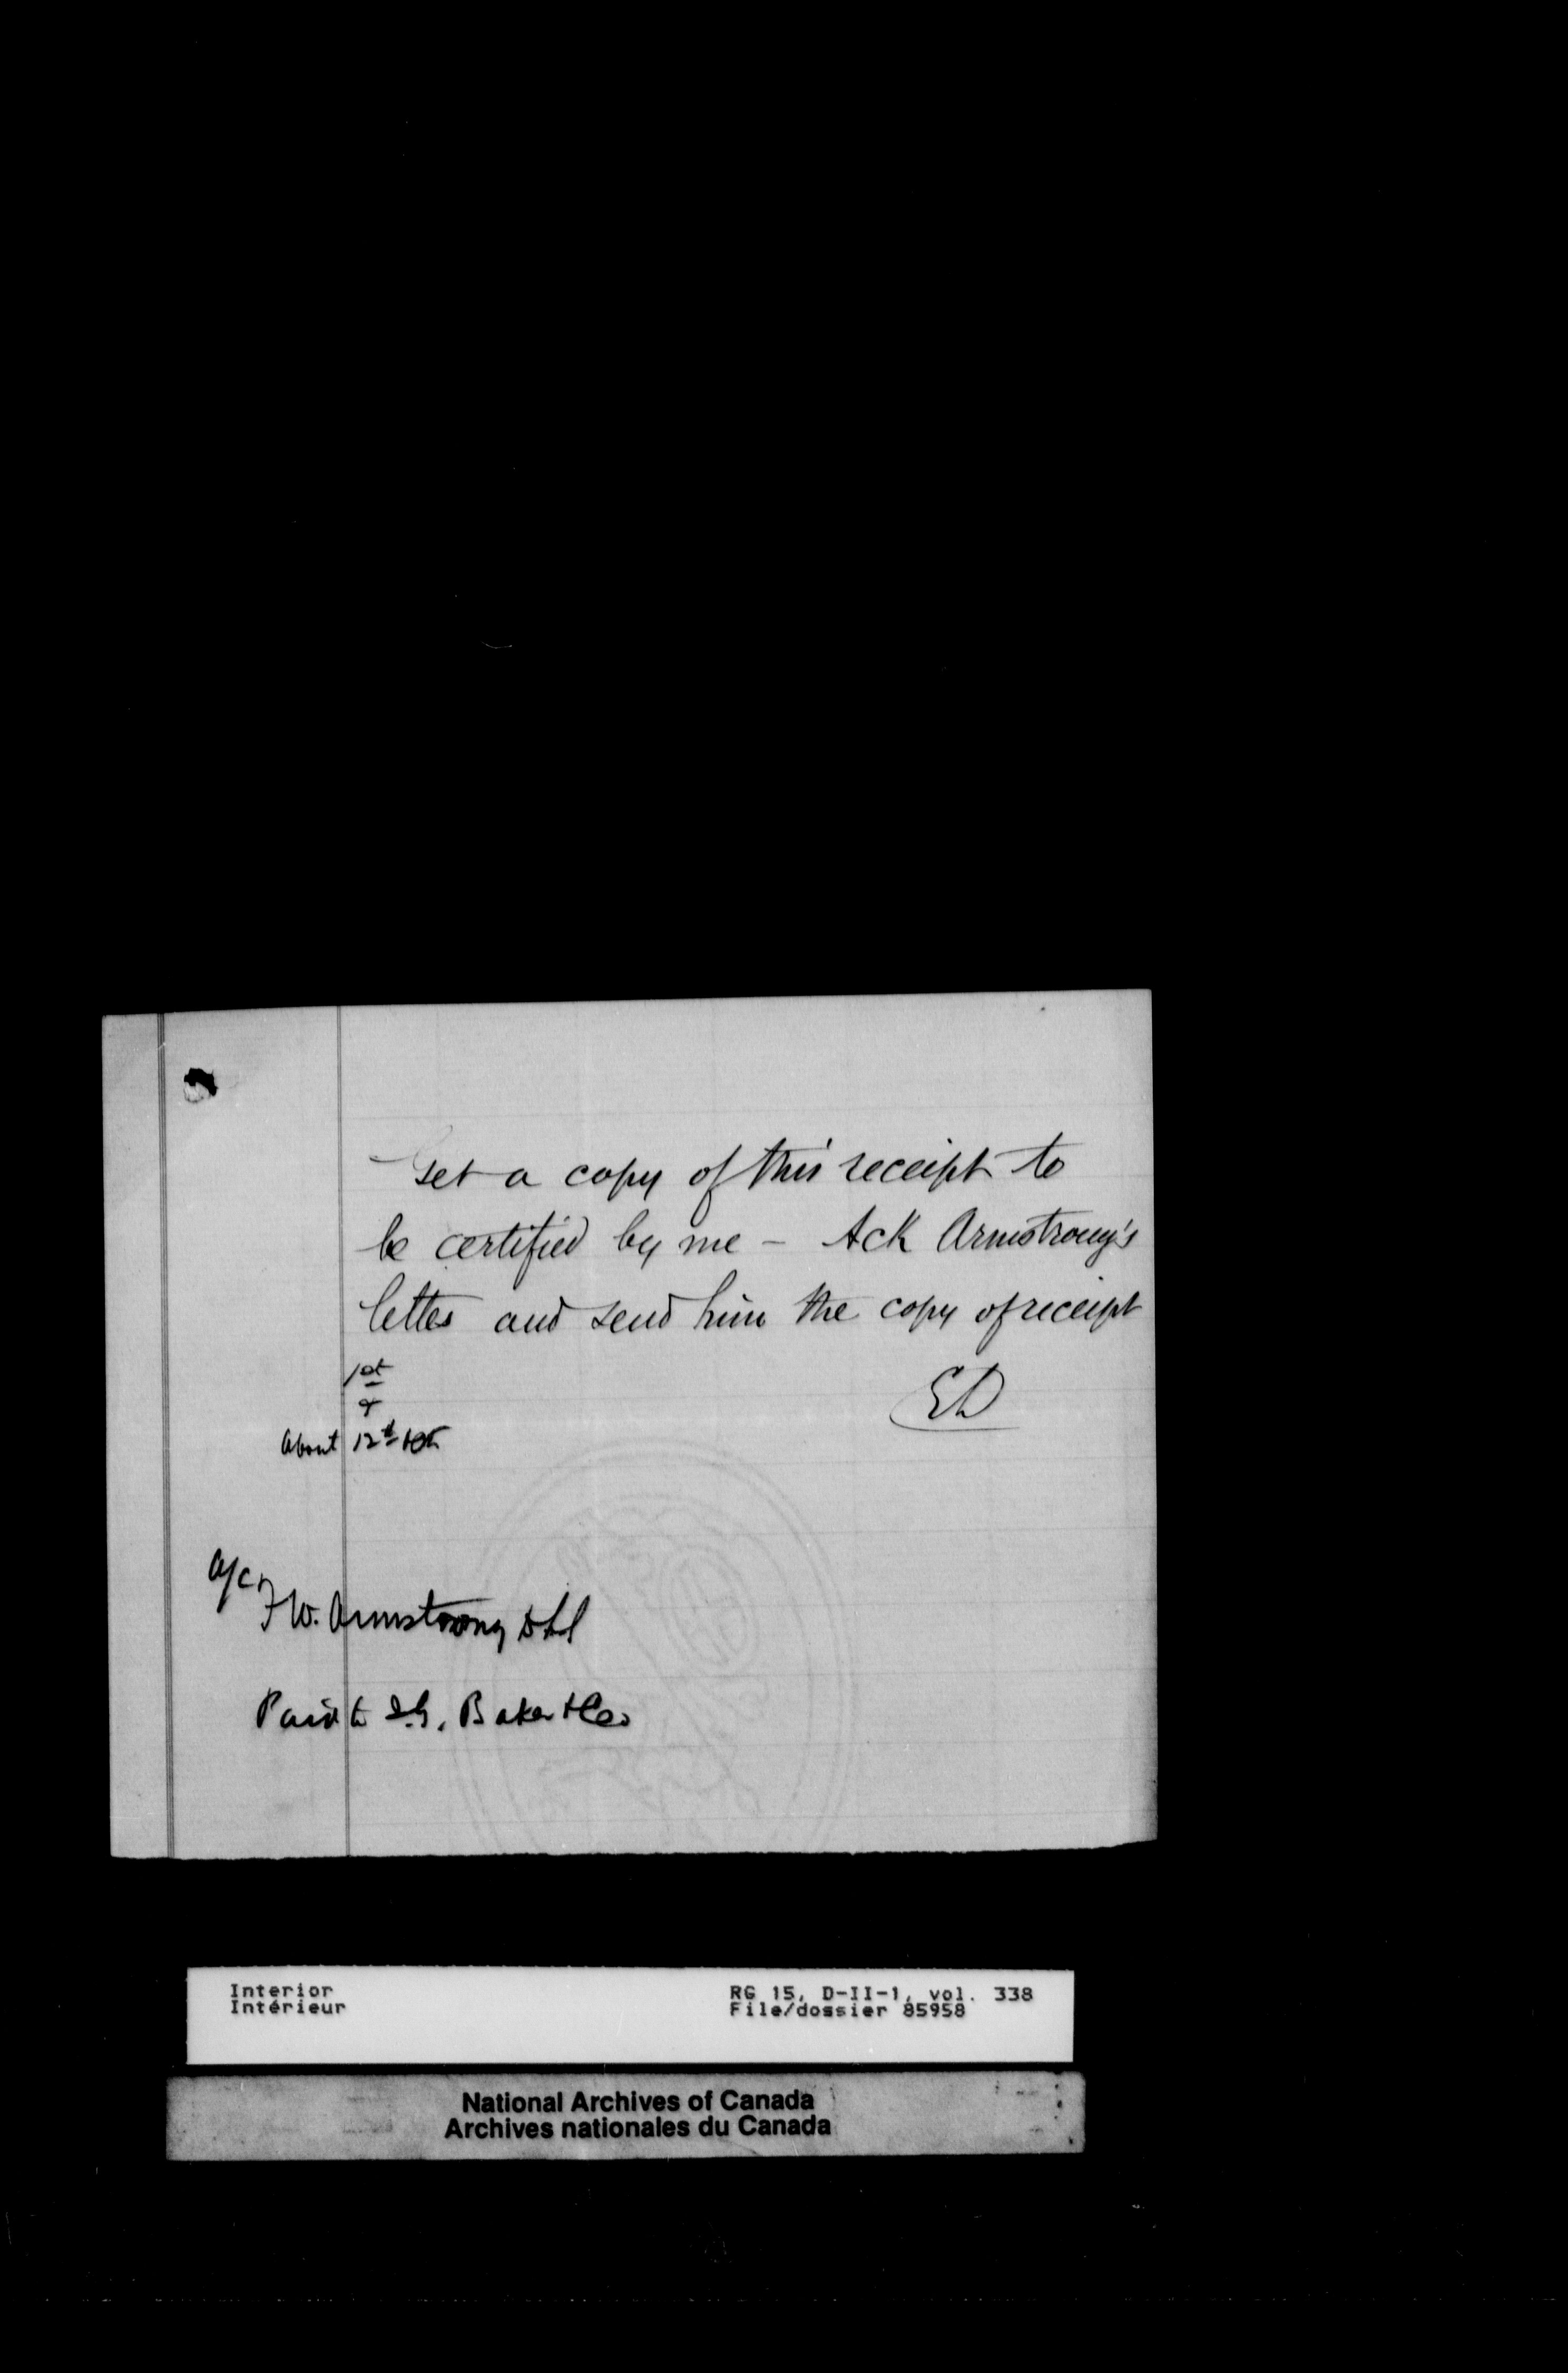 Get a copy of this receipt to
be certified by me - Ack Armstrong's
letter and send him the copy of receipt
ED
1st
&
About 12th
a/c
F W. Armstrong DLS
Paid to I.G. Baker & Co
Interior
Intérieur
RG 15, D-II-1, vol. 338
File/dossier 85958
National Archives of Canada
Archives nationales du Canada